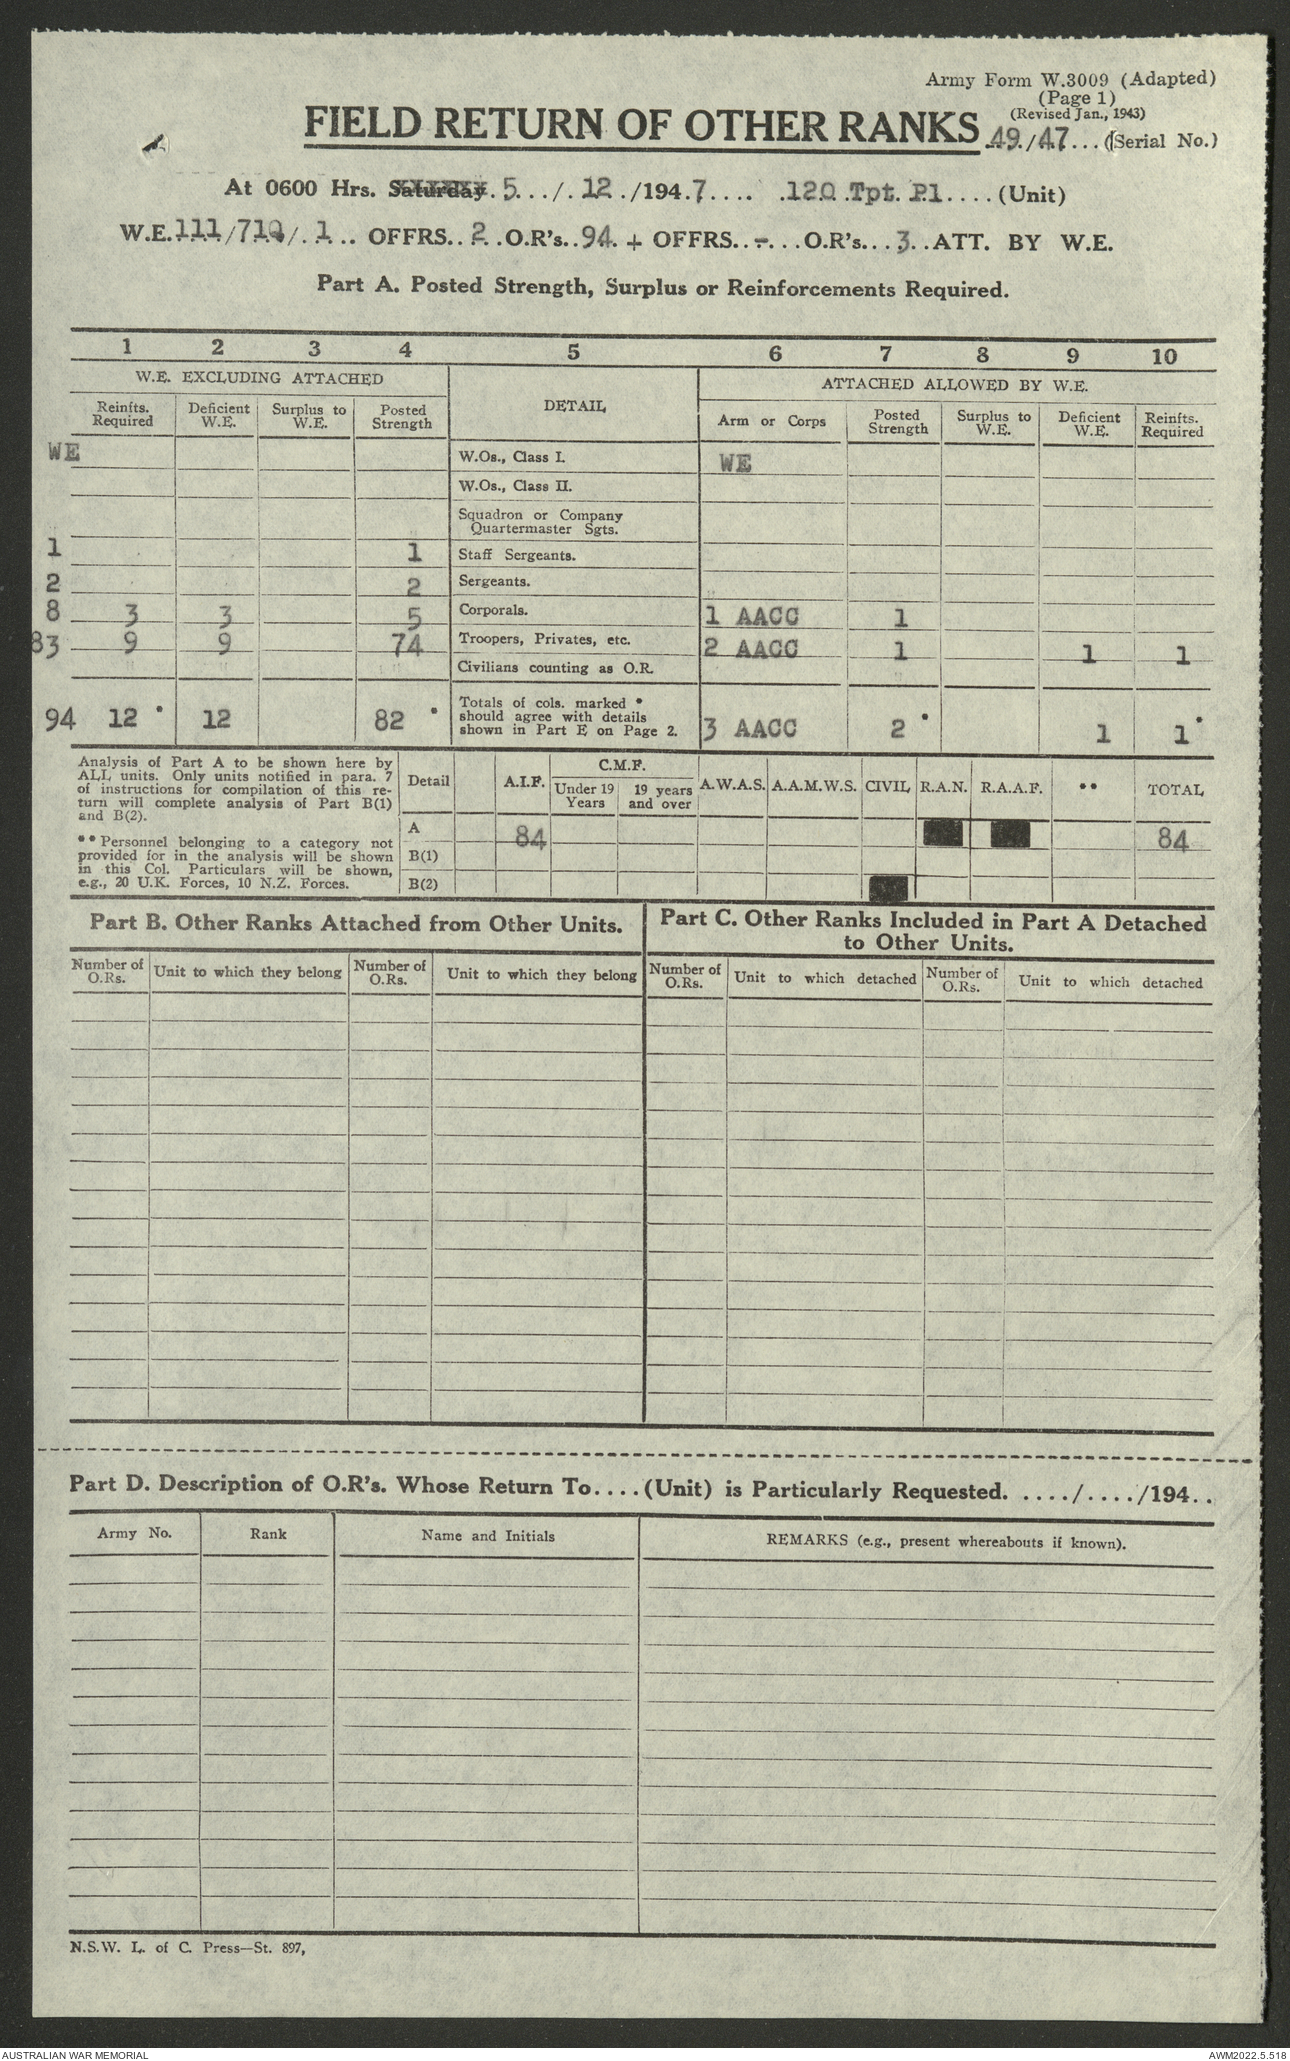 Army Form W.3009 (Adapted)
(Page 1)
(Revised Jan., 1943)
FIELD RETURN OF OTHER RANKS 49/47 (Serial No.)
At 0600 Hrs. Saturday 5 / 12 /1947 120 Tpt. Pl (Unit)
W.E. 111/710/ 1 OFFRS. 2 O.R's. 94 + OFFRS. - O.R's. 3 ATT. BY W.E.
Part A. Posted Strength, Surplus or Reinforcements Required.
1 2 3 4 5 6 7 8 9 10
W.E. EXCLUDING ATTACHED DETAIL ATTACHED ALLOWED BY W.E.
Reinfts. Required Deficient W.E. Surplus to W.E. Posted Strength Arm or Corps Posted Strength Surplus to W.E. Deficient W.E. Reinfts. Required
WE W.Os., Class I. WE
W.Os., Class II.
Squadron or Company
Quartermaster Sgts.
1 1 Staff Sergeants.
2 2 Sergeants.
8 3 3 5 Corporals. 1 AACC 1
83 9 9 74 Troopers, Privates, etc. 2 AACC 1 1 1
Civilians counting as O.R.
94 12 * 12 82 * Totals of cols. marked * should agree with details shown in Part E on Page 2. 3 AACC 2 * 1 1 *
Analysis of Part A to be shown here by
ALL units. Only units notified in para. 7
of instructions for compilation of this re-
turn will complete analysis of Part B(1)
and B(2).
** Personnel belonging to a category not
provided for in the analysis will be shown
in this Col. Particulars will be shown,
e.g., 20 U.K. Forces, 10 N.Z. Forces.
Detail A.I.F. C.M.F. Under 19 Years 19 years and over A.W.A.S. A.A.M.W.S. CIVIL R.A.N. R.A.A.F. ** TOTAL
A 84 84
B(1)
B(2)
Part B. Other Ranks Attached from Other Units.
Part C. Other Ranks Included in Part A Detached
to Other Units.
Number of O.Rs. Unit to which they belong Number of O.Rs. Unit to which they belong Number of O.Rs. Unit to which detached Number of O.Rs. Unit to which detached
Part D. Description of O.R's. Whose Return To....(Unit) is Particularly Requested. ..../..../194..
Army No. Rank Name and Initials REMARKS (e.g., present whereabouts if known).
N.S.W. L. of C. Press—St. 897,
AUSTRALIAN WAR MEMORIAL AWM2022.5.518